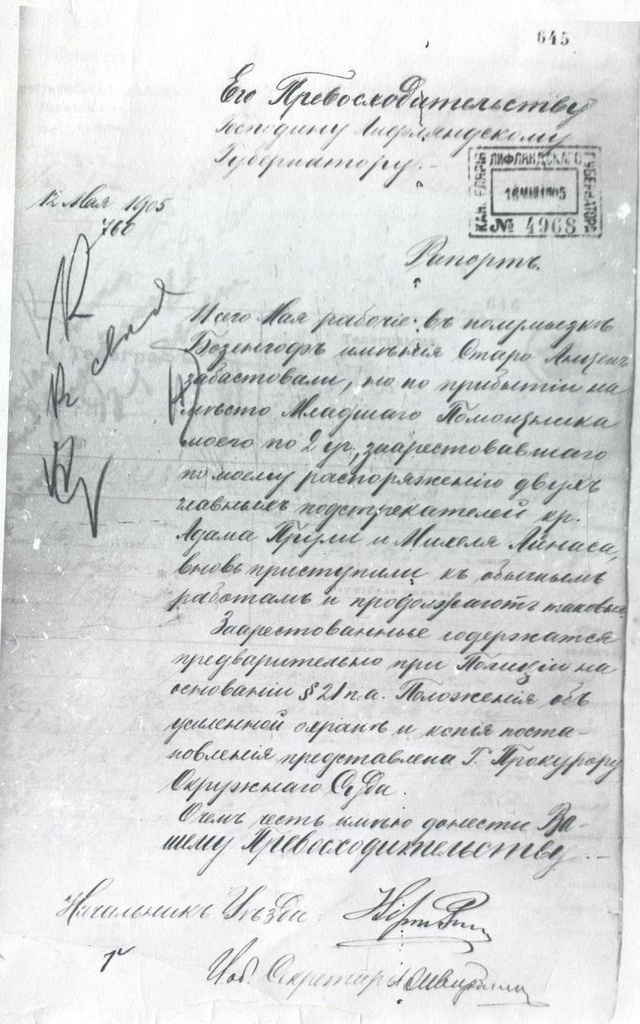 645
Его Превосходительству
Господину Лифляндскому
Губернатору.
КАНЦЕЛЯРІЯ ЛИФЛЯНДСКАГО ГУБЕРНАТОРА
1905
№ 4968
12 Мая 1905
760
Рапортъ.
сего Мая рабочіе въ полумызкѣ
имѣнія Старо
забастовали, но по прибытіи на
мѣсто Младшаго Помощника
моего по 2 уч., заарестовавшаго
по моему распоряженію двухъ
главныхъ подстрекателей кр.
Адама и Михеля
вновь приступили къ обычнымъ
работамъ и продолжаютъ таковыя.
Заарестованные содержатся
предварительно при Полиціи на
основаніи § 21 п. а. Положенія объ
усиленной охранѣ и копія поста-
новленія представлена Г. Прокурору
Окружнаго Суда.
О чемъ честь имѣю донести Ва-
шему Превосходительству.
Начальникъ Уѣзда
Секретаря